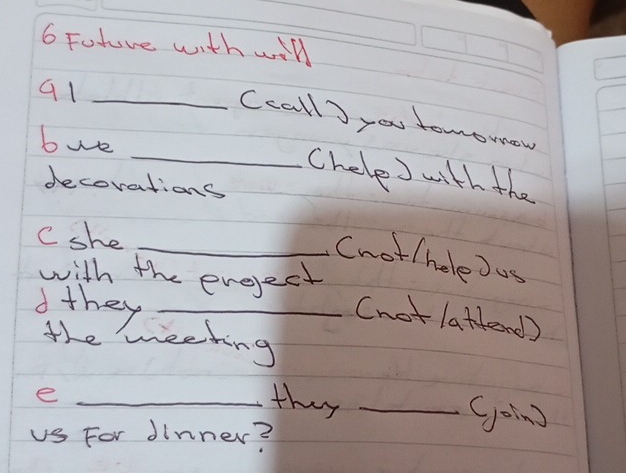 6 Future with will
a I ________ (call) you tomorrow
b we ________ (help) with the
decorations
c she ________ (not/help) us
with the project
d they ________ (not/attend)
the meeting
e ________ they ________ (join)
us For dinner?